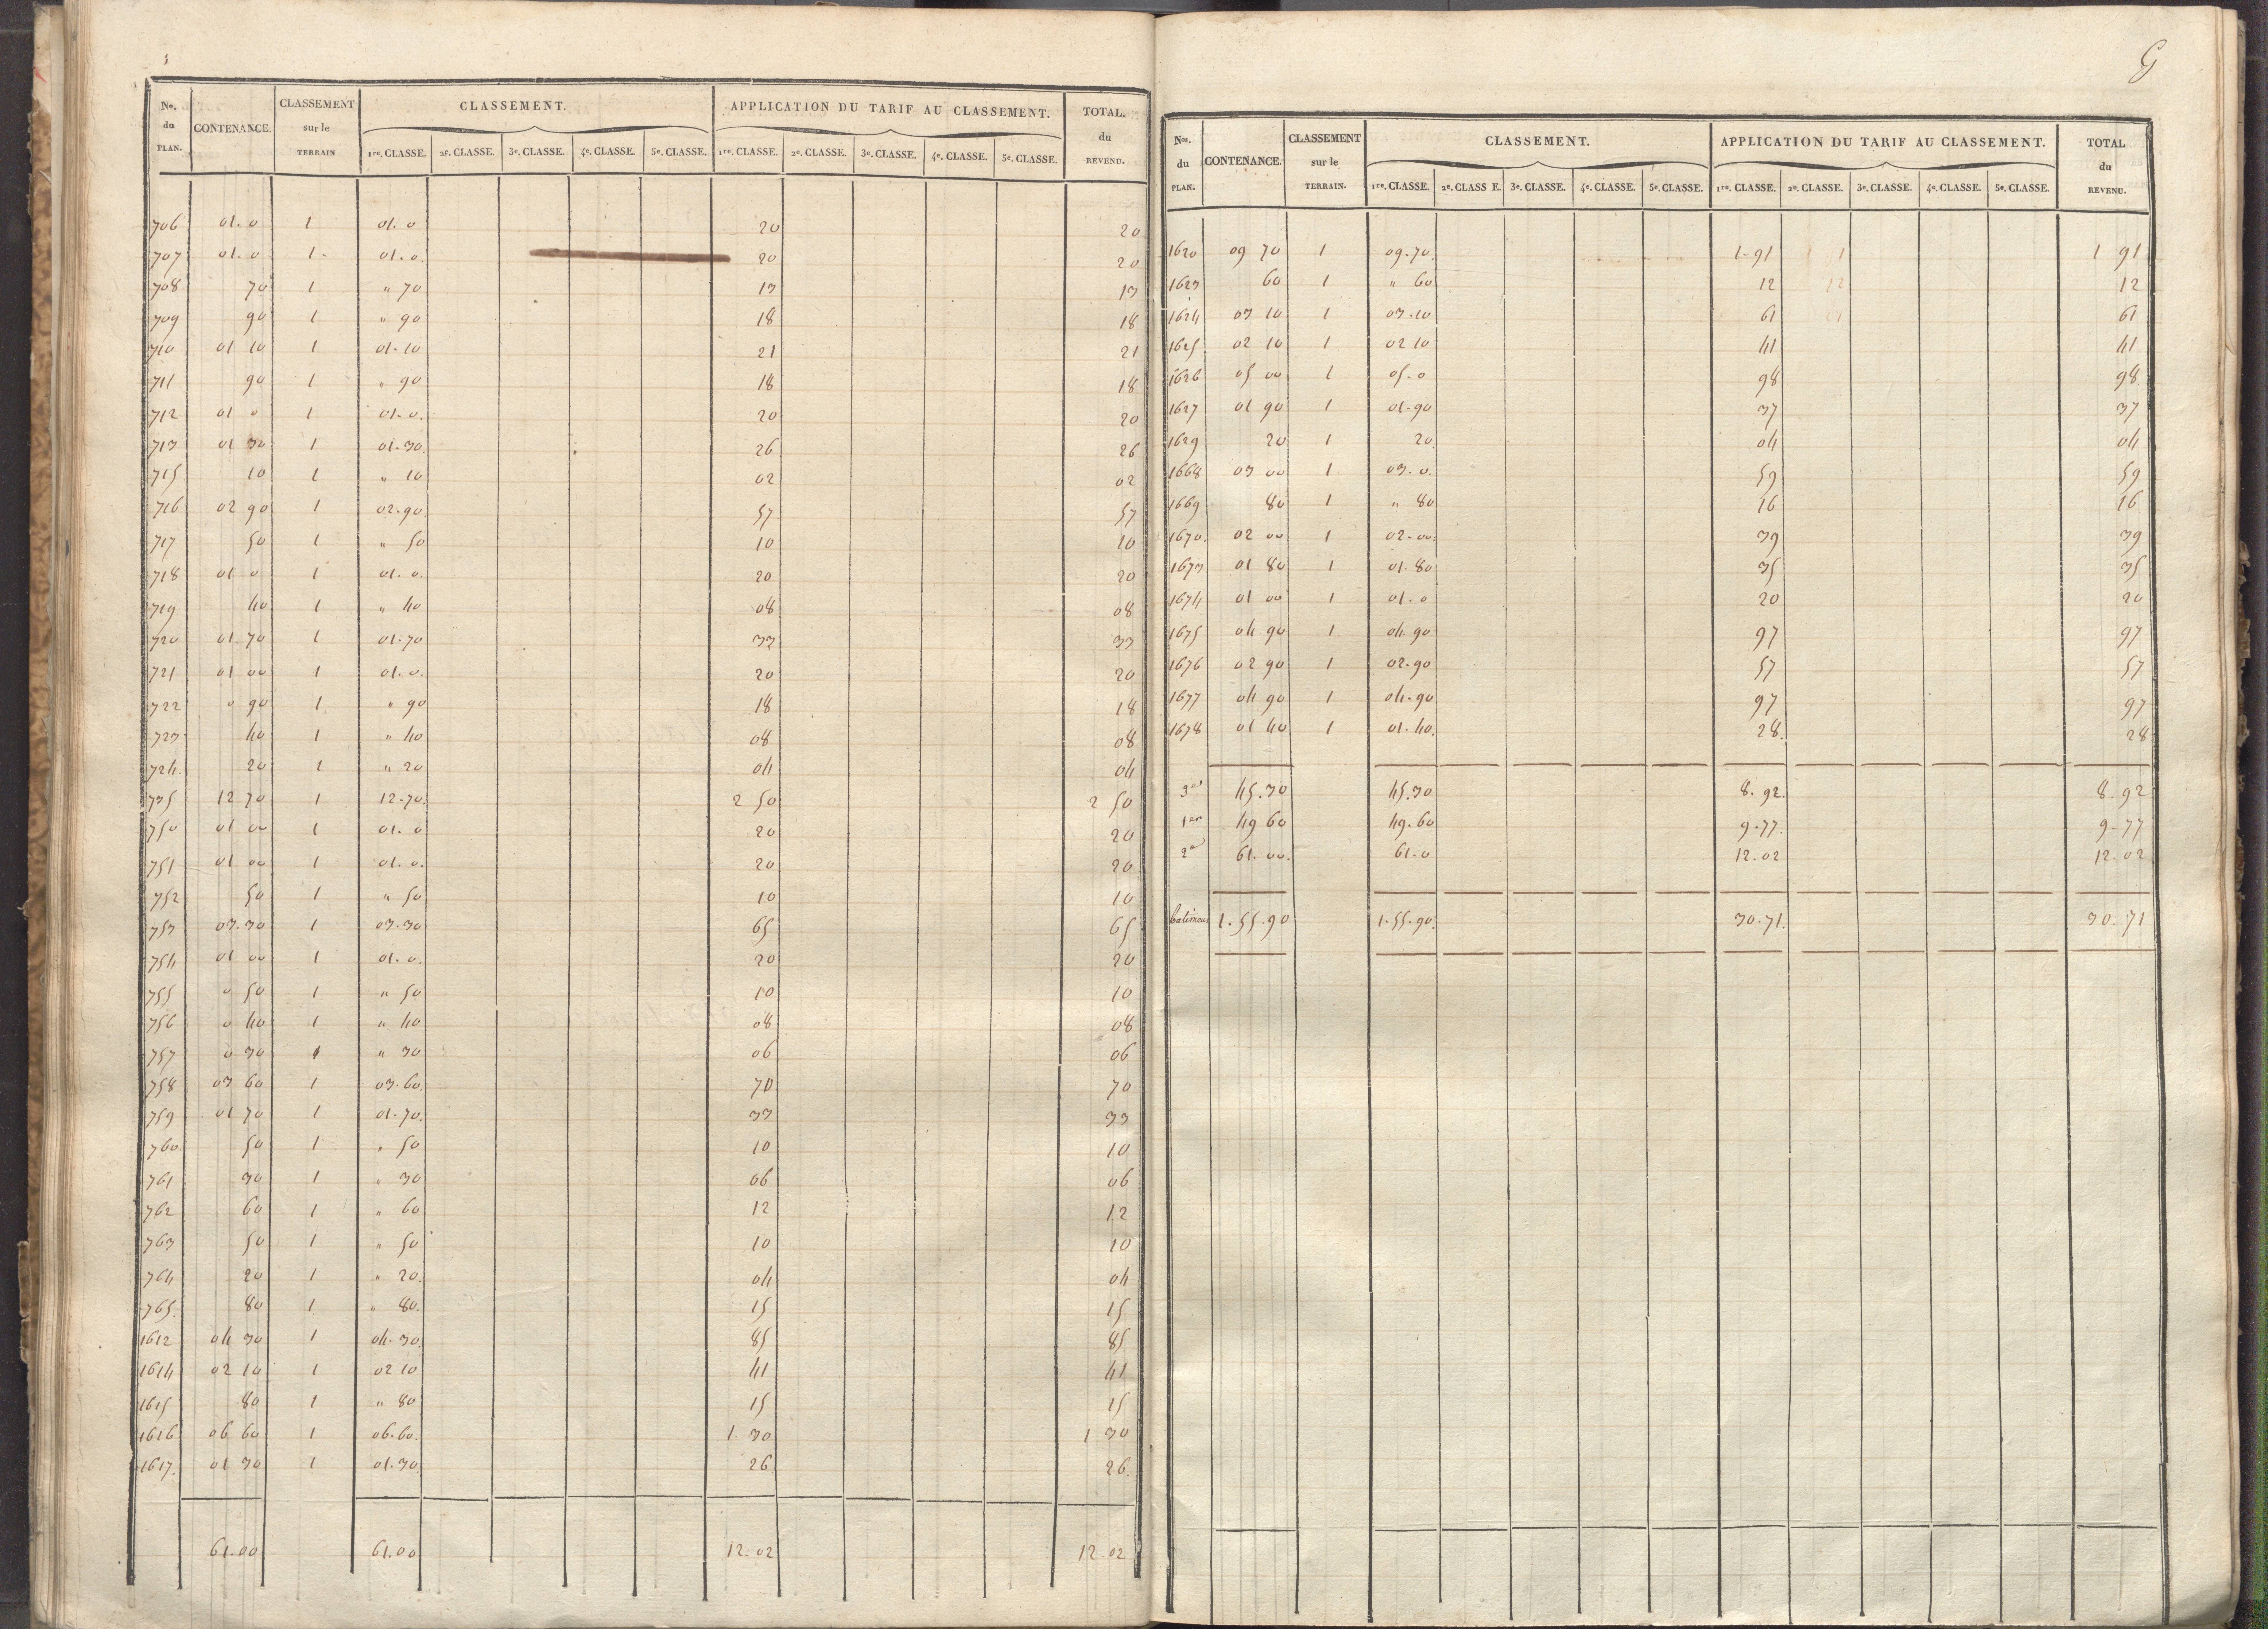 No. du PLAN. CONTENANCE. CLASSEMENT sur le TERRAIN CLASSEMENT. APPLICATION DU TARIF AU CLASSEMENT. TOTAL. du REVENU.
1re. CLASSE. 2e. CLASSE. 3e. CLASSE. 4e. CLASSE. 5e. CLASSE. 1re. CLASSE. 2e. CLASSE. 3e. CLASSE. 4e. CLASSE. 5e. CLASSE.
706 01. 0 1 01. 0 20 20
707 01. 0 1 01. 0 20 20
708 70 1 " 70 13 13
709 90 1 " 90 18 18
710 01 10 1 01-10 21 21
711 90 1 " 90 18 18
712 01 0 1 01. 0. 20 20
713 01 30 1 01.30. 26 26
715 10 1 " 10 02 02
716 02 90 1 02.90 57 57
717 50 1 " 50 10 10
718 01 0 1 01. 0. 20 20
719 40 1 " 40 08 08
720 01 70 1 01.70 33 33
721 01 00 1 01. 0. 20 20
722 0 90 1 " 90 18 18
723 40 1 " 40 08 08
724. 20 1 " 20 04 04
735 12 70 1 12.70. 2 50 2 50
750 01 00 1 01. 0 20 20
751 01 00 1 01. 0. 20 20
752 50 1 " 50 10 10
753 03.30 1 03.30 65 65
754 01 00 1 01. 0. 20 20
755 0 50 1 " 50 10 10
756 0 40 1 " 40 08 08
757 0 30 1 " 30 06 06
758 03 60 1 03.60. 70 70
759 01 70 1 01.70. 33 33
760. 50 1 " 50 10 10
761 30 1 " 30 06 06
762 60 1 " 60 12 12
763 50 1 " 50 10 10
764 20 1 " 20. 04 04
765. 80 1 " 80. 15 15
1612 04 30 1 04.30. 85 85
1614 02 10 1 02 10 41 41
1615 80 1 " 80 15 15
1616 06 60 1 06.60. 1. 30 1 30
1617. 01 30 1 01.30. 26 26.
61.00 61.00 12.02 12.02
Nos. du PLAN. CONTENANCE. CLASSEMENT sur le TERRAIN. CLASSEMENT. APPLICATION DU TARIF AU CLASSEMENT. TOTAL du REVENU.
1re. CLASSE. 2e. CLASS E. 3e. CLASSE. 4e. CLASSE. 5e. CLASSE. 1re. CLASSE. 2e. CLASSE. 3e. CLASSE. 4e. CLASSE. 5e. CLASSE.
1620 09 70 1 09.70. 1-91 1 91
1623 60 1 " 60 12 12
1624 03 10 1 03.10 61 61
1625 02 10 1 02 10 41 41
1626 05 00 1 05.0 98 98
1627 01 90 1 01.90 37 37
1629 20 1 20. 04 04
1668 03 00 1 03. 0. 59 59
1669 80 1 " 80 16 16
1670. 02 00 1 02.00. 39 39
1673 01 80 1 01.80 35 35
1674 01 00 1 01.0 20 20
1675 04 90 1 04.90 97 97
1676 02 90 1 02.90 57 57
1677 04 90 1 04.90 97 97
1678 01 40 1 01.40. 28. 28
3e 45.30 45.30 8.92. 8.92
1er 49 60 49.60 9.77. 9.77
2e 61.00. 61.0 12.02 12.02
batimens 1.55.90 1.55.90. 30.71. 30.71